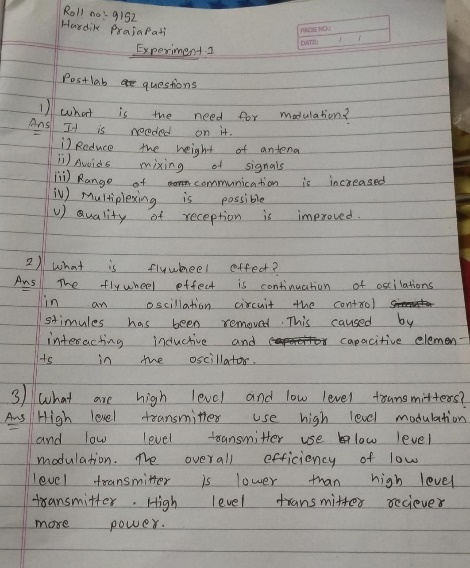 Roll no:- 9152
Hardik Prajapati
PAGE NO.:
DATE: / /
Experiment 1
Postlab questions
1) What is the need for modulation?
Ans It is needed on it.
i) Reduce the height of antena
ii) Avoids mixing of signals
iii) Range of communication is increased
iv) Multiplexing is possible
v) Quality of reception is improved.
2) what is flywheel effect?
Ans The flywheel effect is continuation of oscilations
in an oscillation circuit the control
stimules has been removed. This caused by
interacting inductive and capacitor capacitive elemen-
ts in the oscillator.
3) What are high level and low level transmitters?
Ans High level transmitter use high level modulation
and low level transmitter use low level
modulation. The overall efficiency of low
level transmitter is lower than high level
transmitter. High level transmitter reciever
more power.